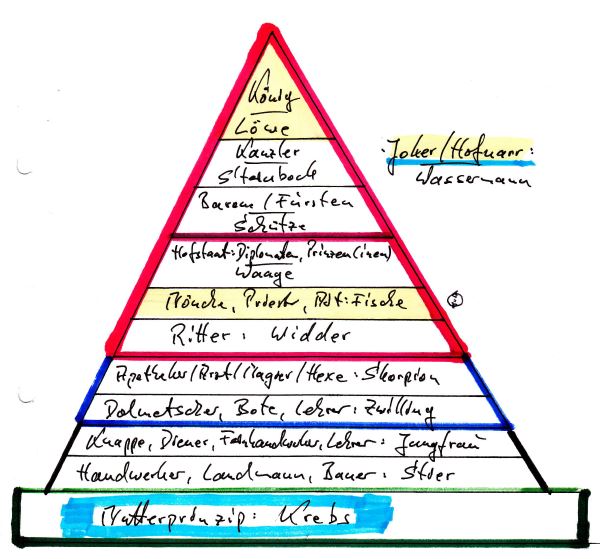 König
Löwe
Kanzler
Steinbock
Joker/Hofnarr:
Wassermann
Baron/Fürsten
Schütze
Hofstaat: Diplomaten, Prinzen(innen)
Waage
Mönche, Priester, Abt: Fische
Ritter: Widder
Apotheker/Arzt/Magier/Hexe: Skorpion
Dolmetscher, Bote, Lehrer: Zwilling
Knappe, Diener, Lehrer: Jungfrau
Handwerker, Landmann, Bauer: Stier
Mutterprinzip: Krebs